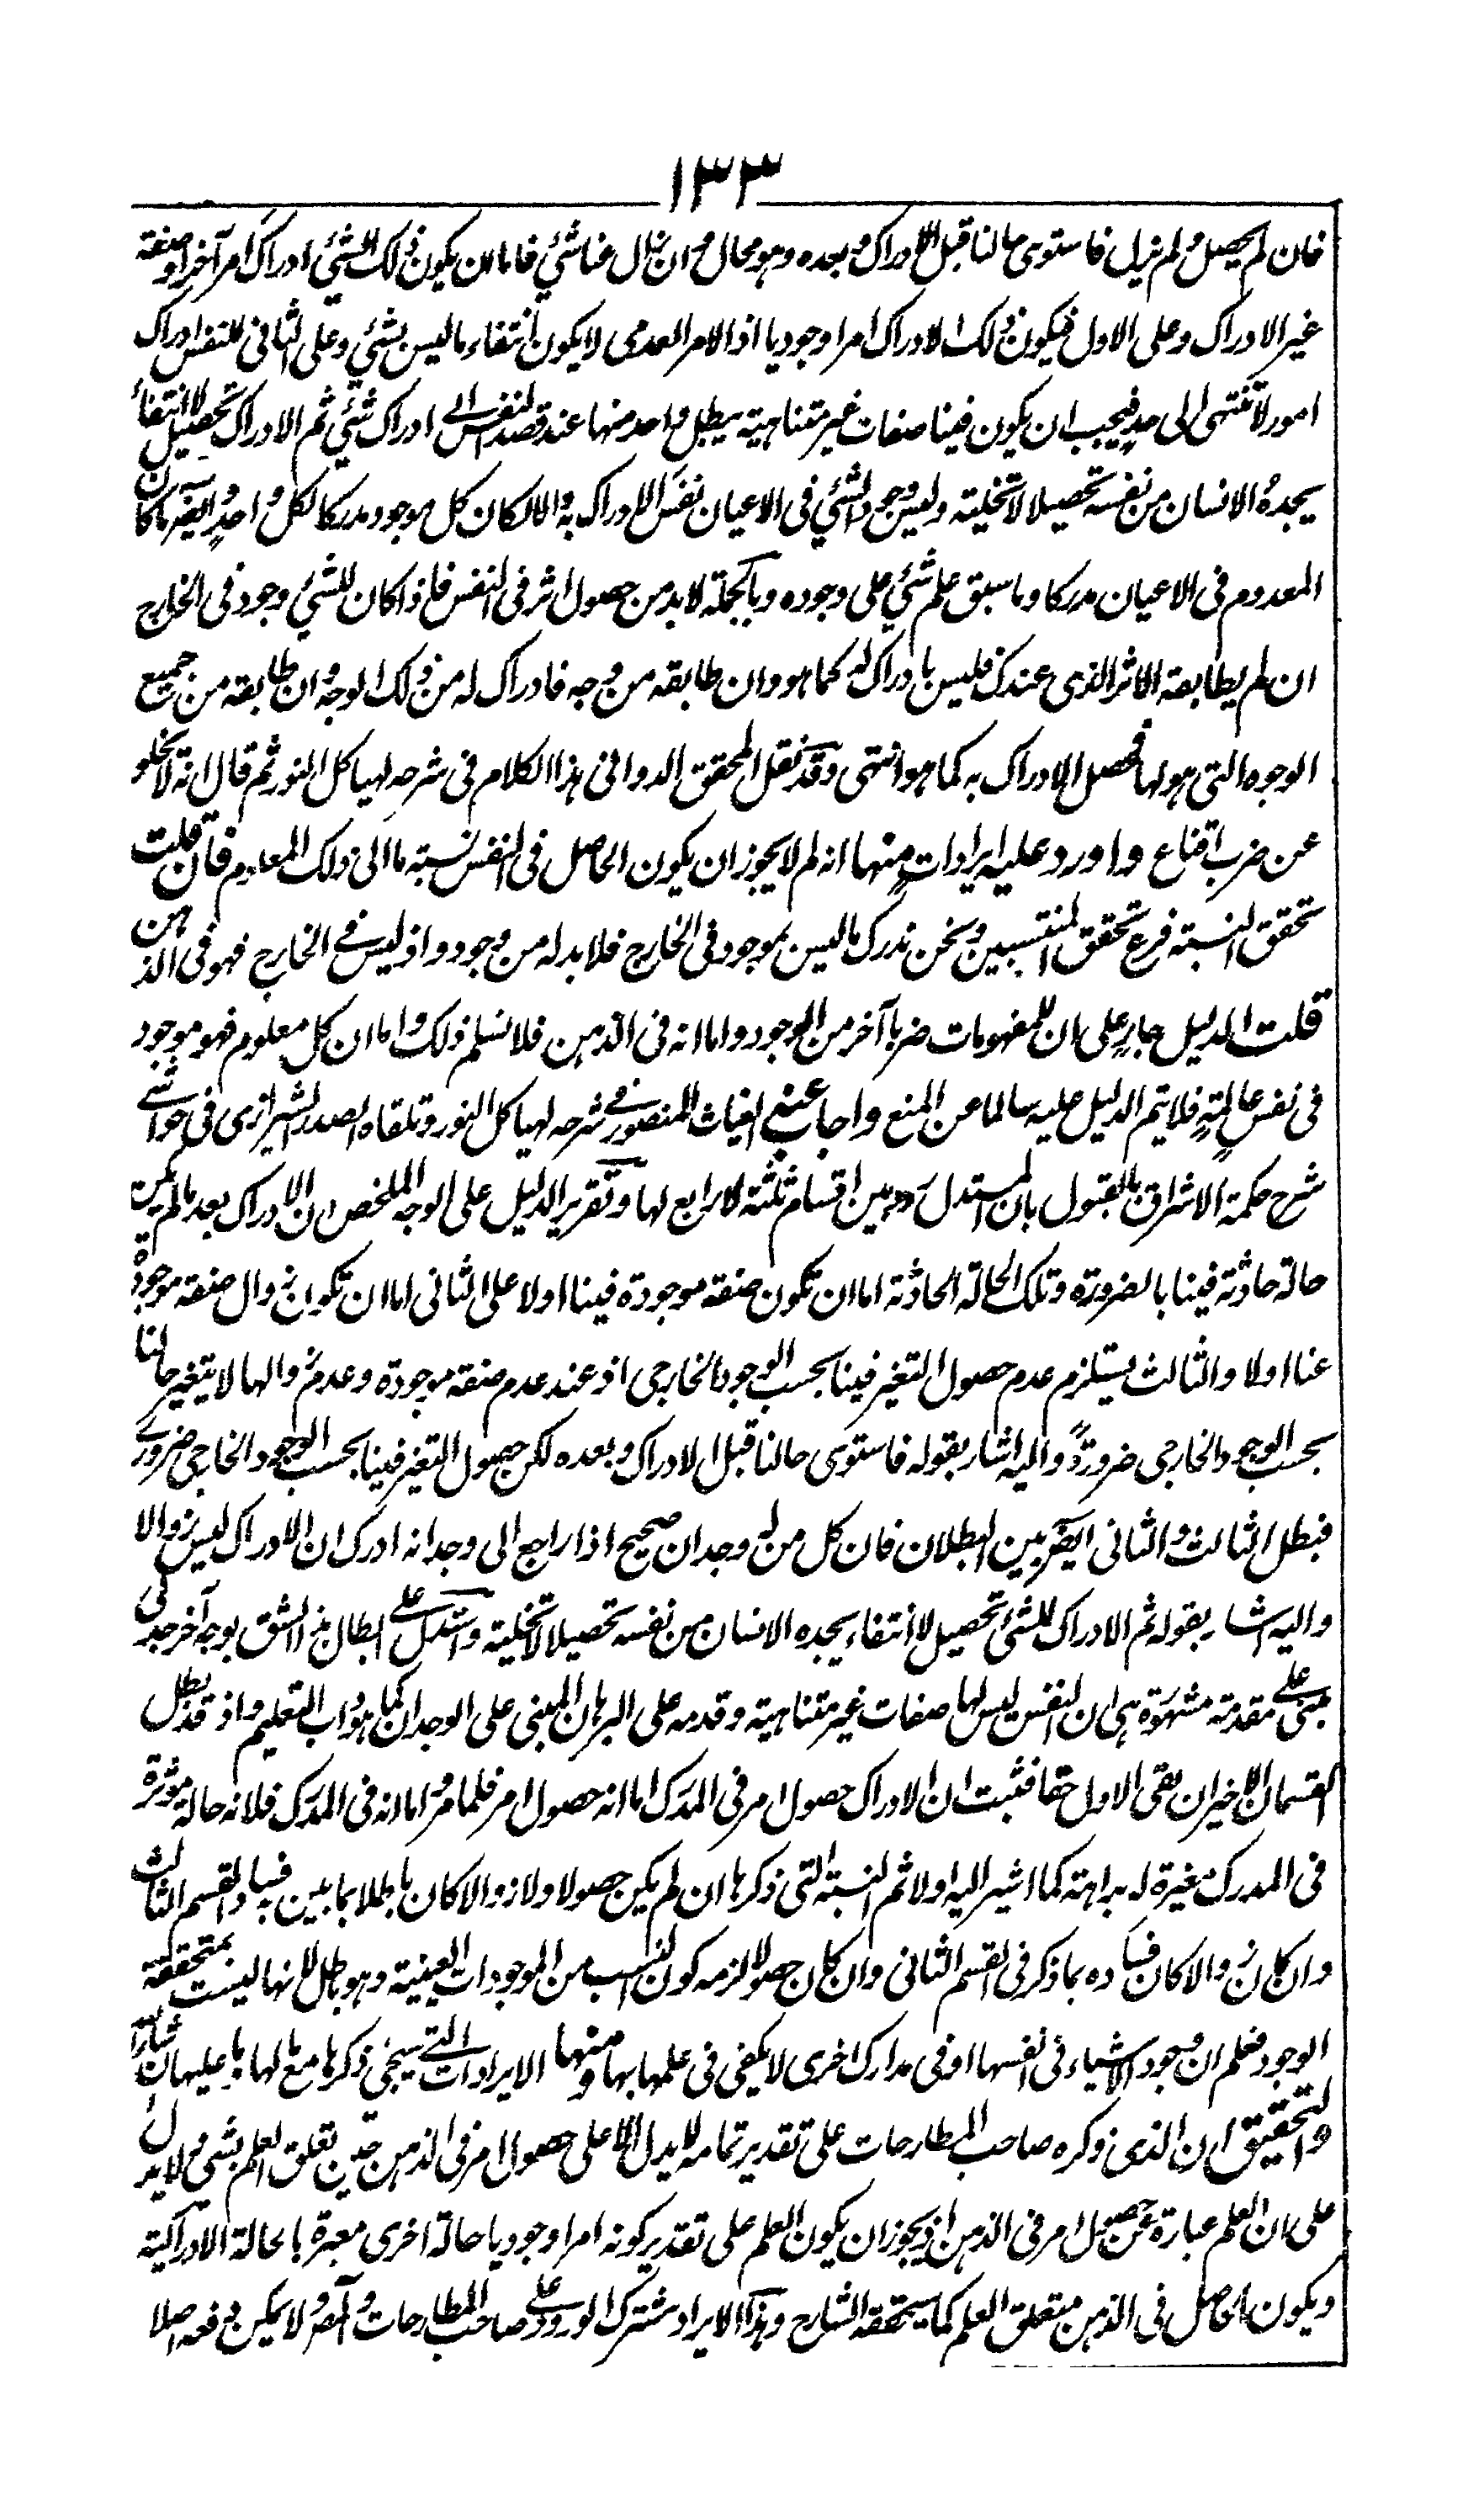 ١٣٣
فان لم يحصل ولم يزل فاستوى حالنا قبل الادراك وبعده وهو محال وان زال عنا شئ فاما ان يكون ذلك الشئ ادراك امر آخر او صفة
غير الادراك وعلى الاول فيكون ذلك الادراك امرا وجوديا اذ الامر العدمى لا يكون انتفاء ما ليس بشئ وعلى الثانى فللنفس ادراك
امور لا تنتهى الى حد فيجب ان يكون فينا صفات غير متناهية يبطل واحد منها عند قصد النفس الى ادراك شئ ثم الادراك تحصيل لا انتفاء
يجده الانسان من نفسه تحصيلا لا تخلية وليس وجود الشئ فى الاعيان نفس الادراك به والا لكان كل موجود مدركا لكل واحد وايضا ما كان
المعدوم فى الاعيان مدركا وما سبق علم شئ على وجوده وبالجملة لابد من حصول اثر فى النفس فاذا كان للشئ وجود فى الخارج
ان لم يطابقه الاثر الذى عندك فليس بادراك له كما هو وان طابقه من وجه فادراك له من ذلك الوجه وان طابقه من جميع
الوجوه التى هو لها فحصل الادراك به كما هو انتهى وقد نقل المحقق الدوانى هذا الكلام فى شرحه لهياكل النور ثم قال انه لا يخلو
عن ضرب اقناع واورد عليه ايرادات منها انه لم لا يجوز ان يكون الحاصل فى النفس نسبة ما الى ذلك المعلوم فان قلت
تحقق النسبة فرع تحقق المنتسبين ونحن ندرك ما ليس بموجود فى الخارج فلابد له من وجود واذ ليس فى الخارج فهو فى الذهن
قلت الدليل جار على ان للمفهومات ضربا آخر من الوجود واما انه فى الذهن فلا نسلم ذلك واما ان كل معلوم فهو موجود
فى نفس عالمة فلا يتم الدليل عليه سالما عن المنع واجاب عنه الغياث المنصور فى شرحه لهياكل النور وتلقاه الصدر الشيرازى فى حواشى
شرح حكمة الاشراق بالقبول بان المستدل ردد بين اقسام ثلثة لا رابع لها وتقرير الدليل على الوجه الملخص ان الادراك بعد ما لم يكن
حالة حادثة فينا بالضرورة وتلك الحالة الحادثة اما ان تكون صفة موجودة فينا او لا على الثانى اما ان تكون زوال صفة موجودة
عنا او لا والثالث يستلزم عدم حصول التغير فينا بحسب الوجود الخارجى اذ عند عدم صفة موجودة وعدم زوالها لا يتغير حالنا
بحسب الوجود الخارجى ضرورة واليه اشار بقوله فاستوى حالنا قبل الادراك وبعده لكن حصول التغير فينا بحسب الوجود الخارجى ضرورى
فبطل الثالث والثانى ايضا بين البطلان فان كل من له وجدان صحيح اذا راجع الى وجدانه ادرك ان الادراك ليس زوالا
واليه اشار بقوله ثم الادراك للشئ تحصيل لا انتفاء يجده الانسان من نفسه تحصيلا لا تخلية واستدل على ابطال هذا الشق بوجه آخر جدلى
مبنى على مقدمة مشهورة هى ان النفس ليس لها صفات غير متناهية وقدمه على البرهان المبنى على الوجدان كما هو داب التعليم واذ قد بطل
القسمان الاخيران بقى الاول حقا فثبت ان الادراك حصول امر فى المدرك اما انه حصول امر فلما مر واما انه فى المدرك فلانه حالة مؤثرة
فى المدرك مغيرة له بداهة كما اشير اليه اولا ثم النسبة التى ذكرها ان لم يكن حصولا ولا زوالا كان باطلا بما بين به فساد القسم الثالث
وان كان زوالا كان فساده بما ذكر فى القسم الثانى وان كان حصولا لزمه كون النسب من الموجودات العينية وهو باطل لانها ليست بمتحققة
الوجود فعلم ان وجود الاشياء فى انفسها او فى مدارك اخرى لا يكفى فى علمها بها ومنها الايرادات التى سيجئ ذكرها مع ما لها وما عليها ان شاء الله
والتحقيق ان الذى ذكره صاحب المطارحات على تقدير تمامه لا يدل الا على حصول امر فى الذهن حين تعلق العلم بشئ ولا يدل
على ان العلم عبارة عن حصول امر فى الذهن اذ يجوز ان يكون العلم على تقدير كونه امرا وجوديا حالة اخرى معبرة بالحالة الادراكية
ويكون الحاصل فى الذهن متعلق العلم كما سيحققه الشارح وهذا الايراد مشترك الورود على صاحب المطارحات و لا يمكن دفعه اصلا